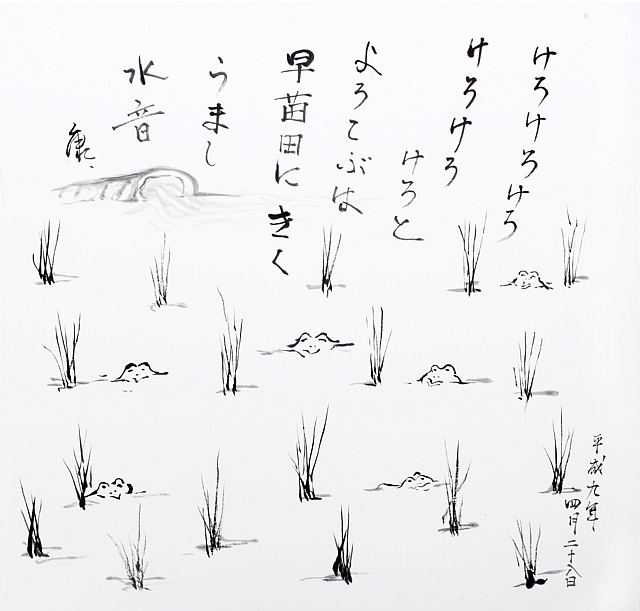 けろけろけろ
けろけろ
けろと
よろこぶは
早苗田にきく
うまし
水音
康
平成九年
四月二十八日